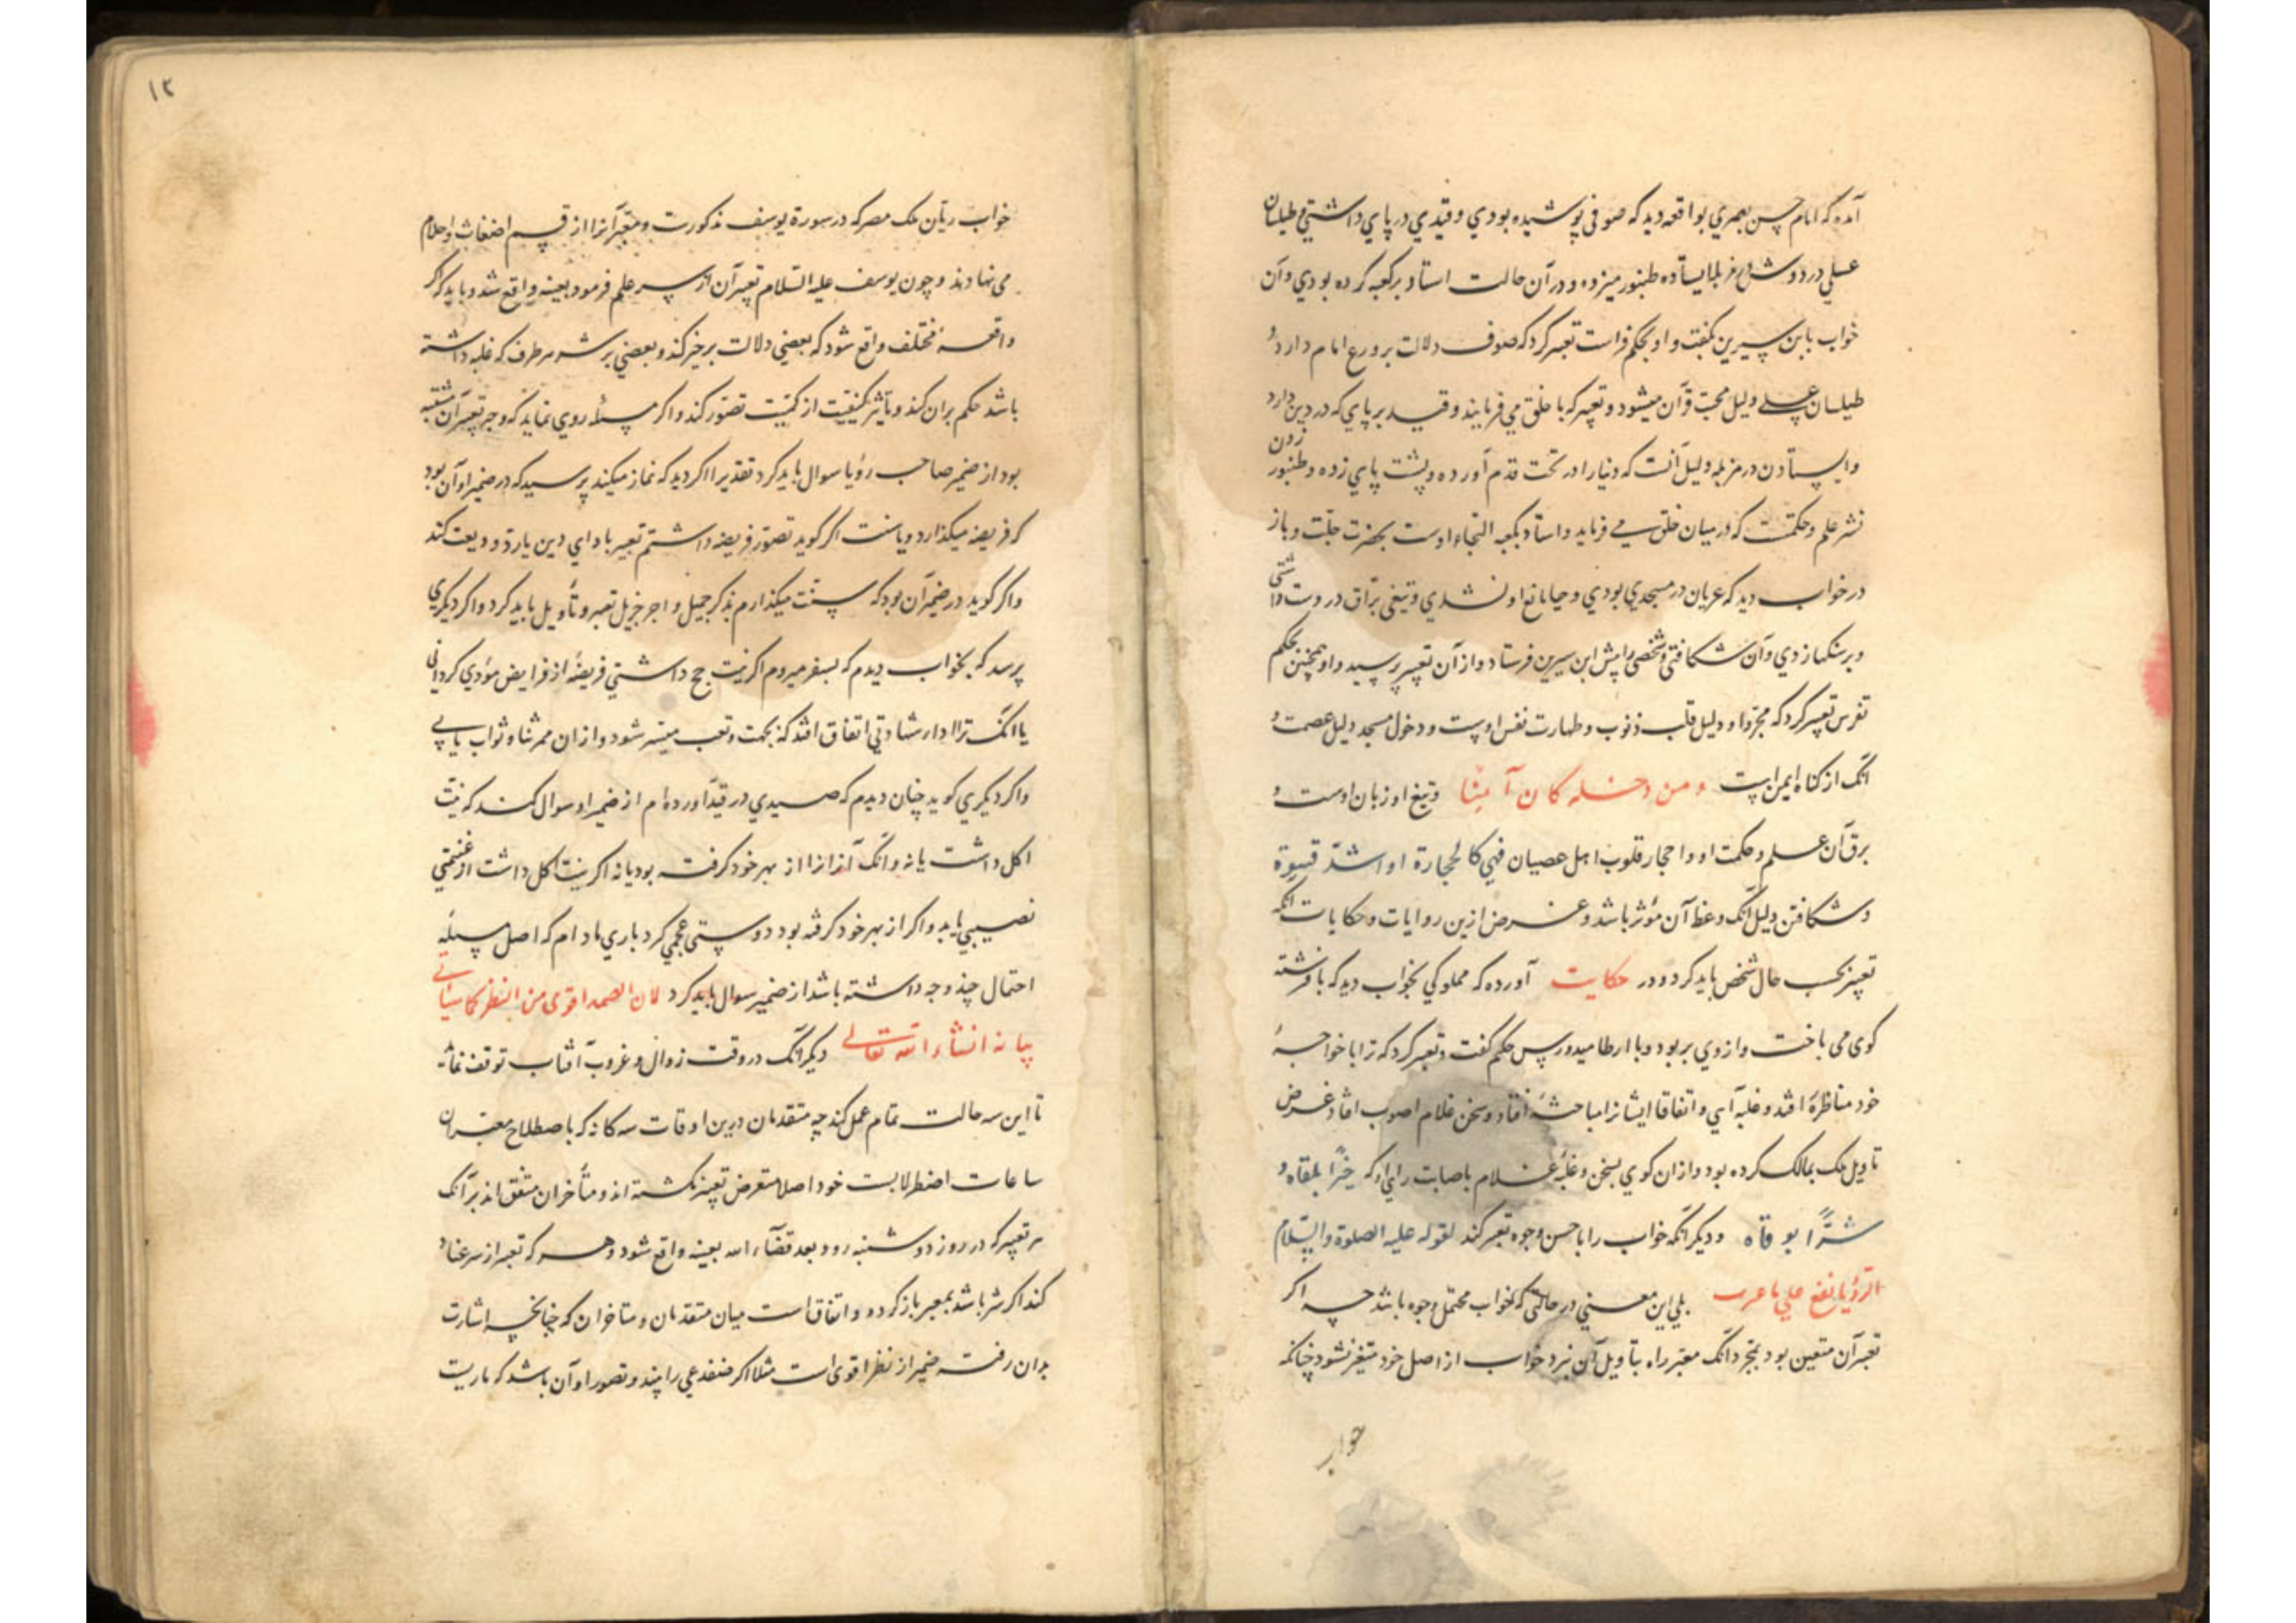 آمده که امام حسن بصری بواقعه دید که صوفی پوشیده بودی و قیدی در پای داشتی و طیلسان
عسلی در دوش در مزبله ایستاده طنبور میزده و در آن حالت استاد بر کعبه کرده بودی و آن
خواب بابن سیرین بگفت و او بحکم فراست تعبیر کرد که صوف دلالت بر ورع امام دارد و
طیلسان عسلی دلیل محبت قرآن میشود و تعبیر که با خلق می فرمایند و قید بر پای که در دین دارد
وایستادن در مزبله دلیل آنست که دنیا را در تحت قدم آورده و پشت پای زده و طنبور زدن
نشر علم و حکمتست که در میان خلق می فرماید و استاد بکعبه التجاء اوست بحضرت جلت و باز
در خواب دید که عریان در مسجدی بودی و حیا مانع او نشدی و تیغی براق در دست داشتی
و بر سنکها زدی و آن شکافتی و شخصی را پیش ابن سیرین فرستاد و از آن تعبیر پرسید و او همچنین بحکم
تفرس تعبیر کرد که تجرد او دلیل قلت ذنوب و طهارت نفس اوست و دخول مسجد دلیل عصمت و
آنک از کناه ایمن است و من دخله کان آمنا و تیغ او زبان اوست و
برق آن علم و حکمت او و احجار قلوب اهل عصیان فهی کالحجارة او اشد قسوة
و شکافتن دلیل آنک وعظ آن مؤثر باشد و غرض ازین روایات و حکایات آنکه
تعبیر بحسب حال شخص باید کرد و در حکایت آورده که مملوکی بخواب دید که با فرشته
کوی می باخت و از وی بربود و با ارطامیدورس حکیم گفت و تعبیر کرد که ترا با خواجهٔ
خود مناظرهٔ افتد و غلبه آیی و اتفاقا ایشانرا مباحثهٔ افتاد و سخن غلام اصوب افتاد غرض
تاویل ملک بمالک کرده بود و از ان کوی بسخن و غلبهٔ غلام باصابت رای او که خیرًا یلقاه و
شرًّا یوقاه و دیگر آنکه خواب را باحسن وجوه تعبیر کند لقوله علیه الصلوة والسلام
الرؤیا تقع علی ما عبرت بلی این معنی در حالتی که خواب محتمل وجوه باشد چه اگر
تعبیر آن متعین بود بمجرد آنک معبر راه بتأویل آن نبرد خواب از اصل خود متغیر نشود چنانکه
خواب
۱۲
خواب ریان ملک مصر که در سورة یوسف مذکورست و معبر آنرا از قسم اضغاث و احلام
می نهادند و چون یوسف علیه السلام تعبیر آن از سر علم فرمود بعینه واقع شد و باید که اگر
واقعهٔ مختلف واقع شود که بعضی دلالت بر خیر کند و بعضی بر شر هر طرف که غلبه داشته
باشد حکم بران کند و تأثیر کیفیت از کمیت تصور کند و اکر مسئله روی نماید که وجه تعبیر آن مشتبه
بود از ضمیر صاحب رؤیا سوال باید کرد تقدیرا اکر دید که نماز میکند پرسید که در ضمیر او آن بود
که فریضه میکذارد و یا سنت اکر کوید تصور فریضه داشتم تعبیر بادای دین یا رد ودیعت کند
واکر کوید در ضمیر آن بود که سنت میکذارم بذکر جمیل و اجر جزیل تعبیر و تأویل باید کرد و اکر دیکری
پرسد که بخواب دیدم که بسفر میروم اکر نیت حج داشتی فریضهٔ از فرایض مؤدی کردانی
یا آنک ترا ادار شادتی اتفاق افتد که بجهت و تعب میسر شود و از ان ممر ثنا و ثواب یابی
واکر دیکری کوید چنان دیدم که صیدی در قید آورده ام از ضمیر او سوال کنند که نیت
اکل داشت یا نه و آنک آنرا از بهر خود کرفته بود یا نه اکر نیت اکل داشت از غنیمتی
نصیبی یابد و اکر از بهر خود کرفته بود دوستی عجمی کرد باری مادام که اصل مسئله
احتمال چند وجه داشته باشد از ضمیر سوال باید کرد لان الضمیر اقوی من النظر کما سیأتی
بیانه انشاء الله تعالی دیکر آنک در وقت زوال و غروب آفتاب توقف نماید
تا این سه حالت تمام عمل کند چه متقدمان درین اوقات سه کانه که باصطلاح معبران
ساعات اضطرلابست خود اصلا متعرض تعبیر نکشته اند و متأخران متفق اند بر آنک
هر تعبیر که در روز دوشنبه رود بعد قضاء الله بعینه واقع شود و هر که تعبیر از سر عناد
کند اکر شر باشد بمعبر باز کردد و اتفاق است میان متقدمان و متاخران که چنانچه اشارت
بدان رفت ضمیر از نظر اقوی است مثلا اکر ضفدعی را بیند و تصور او آن باشد که ماریست